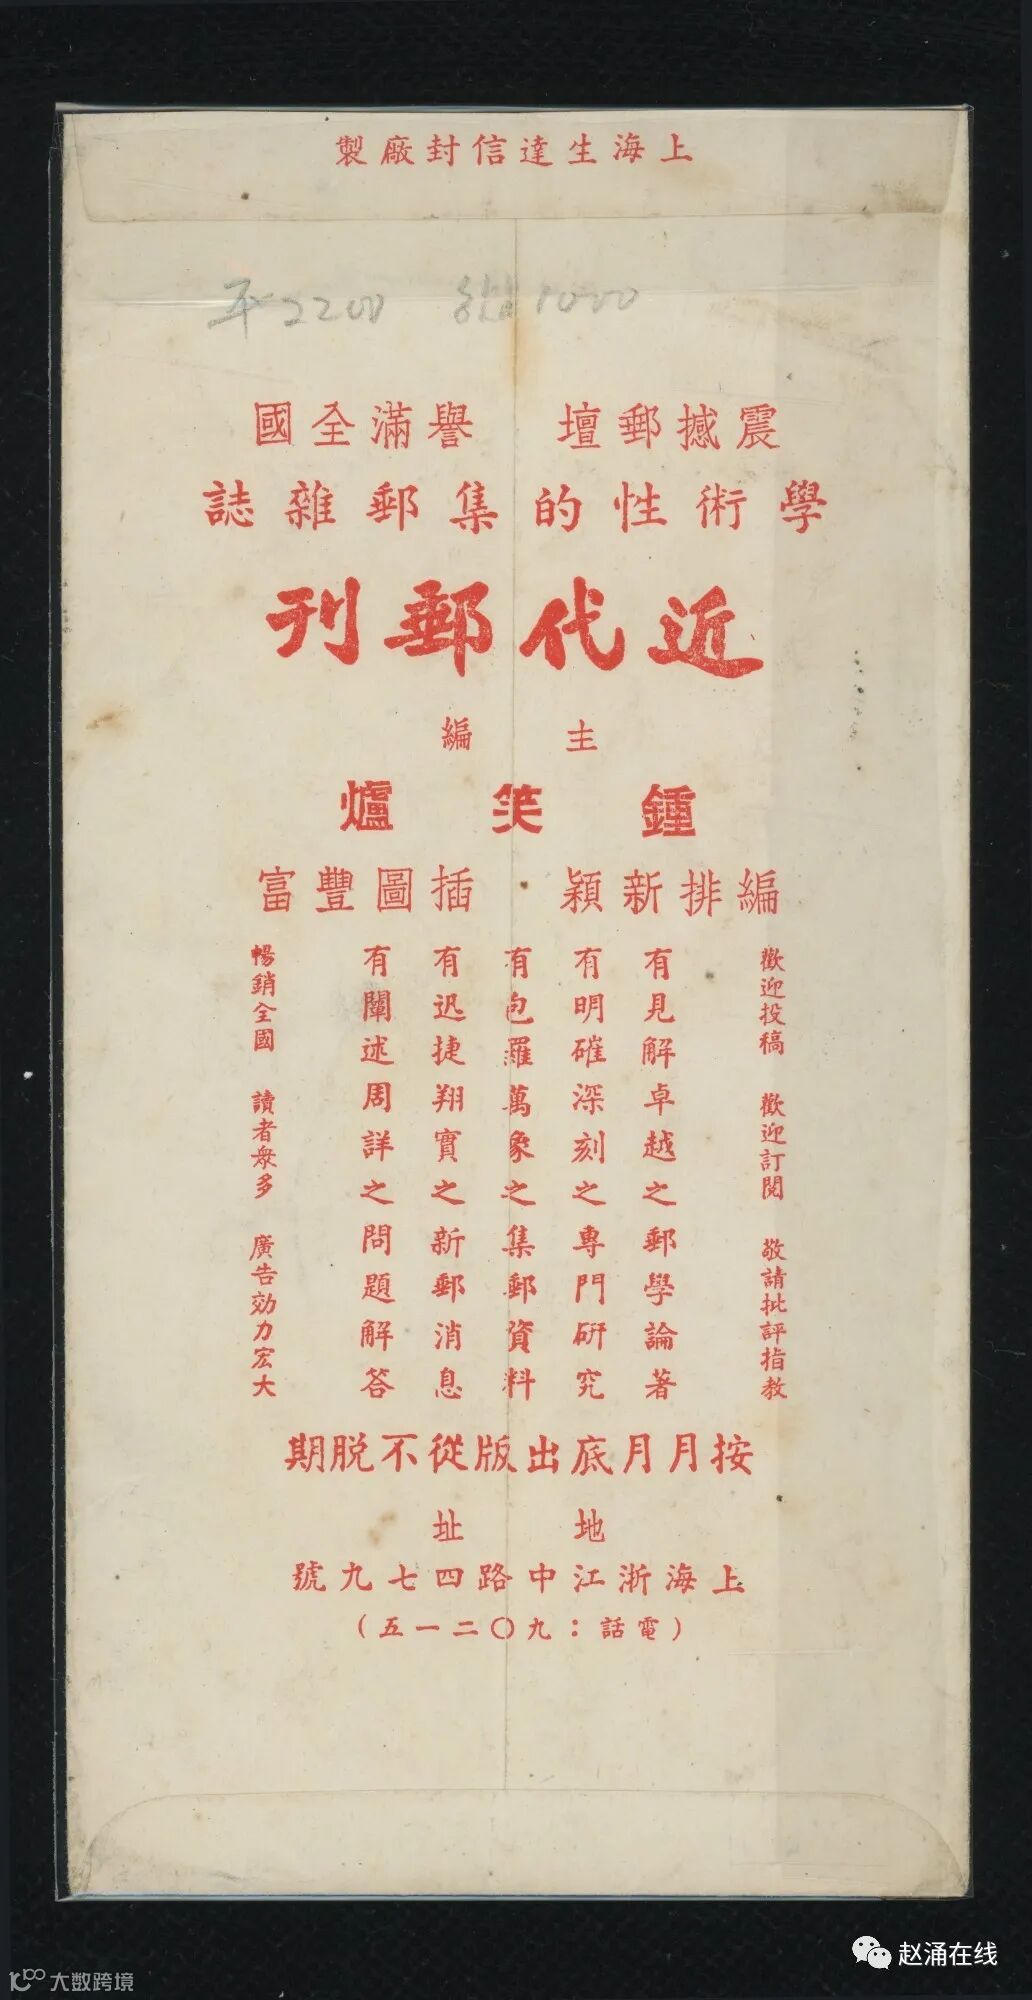 上海生達信封廠製
平2200 1000
震撼郵壇 譽滿全國
學術性的集郵雜誌
近代郵刊
主編
鍾笑爐
編排新穎 插圖豐富
歡迎投稿 歡迎訂閱 敬請批評指教
有見解卓越之郵學論著
有明確深刻之專門研究
有包羅萬象之集郵資料
有迅捷翔實之新郵消息
有闡述周詳之問題解答
暢銷全國 讀者衆多 廣告効力宏大
按月月底出版從不脫期
地址
上海浙江中路四七九號
(電話：九〇二一五)
赵涌在线
大数跨境